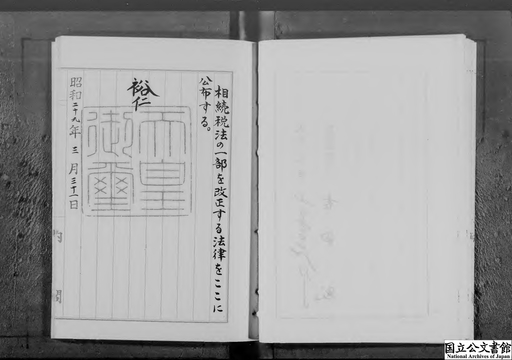 相続税法の一部を改正する法律をここに
公布する。
裕仁
天皇
御璽
昭和二十九年三月三十一日
国立公文書館
National Archives of Japan